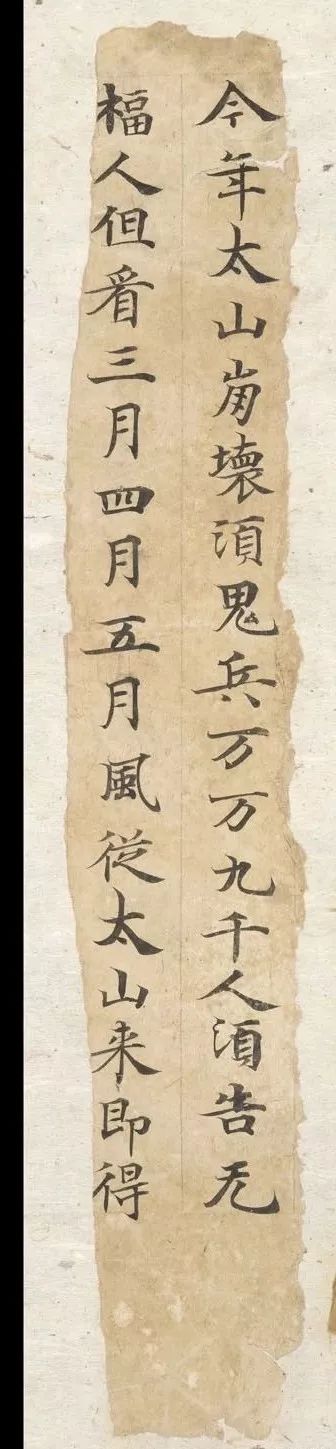 今年太山崩壞須鬼兵万万九千人須告无
楅人但看三月四月五月風從太山来即得